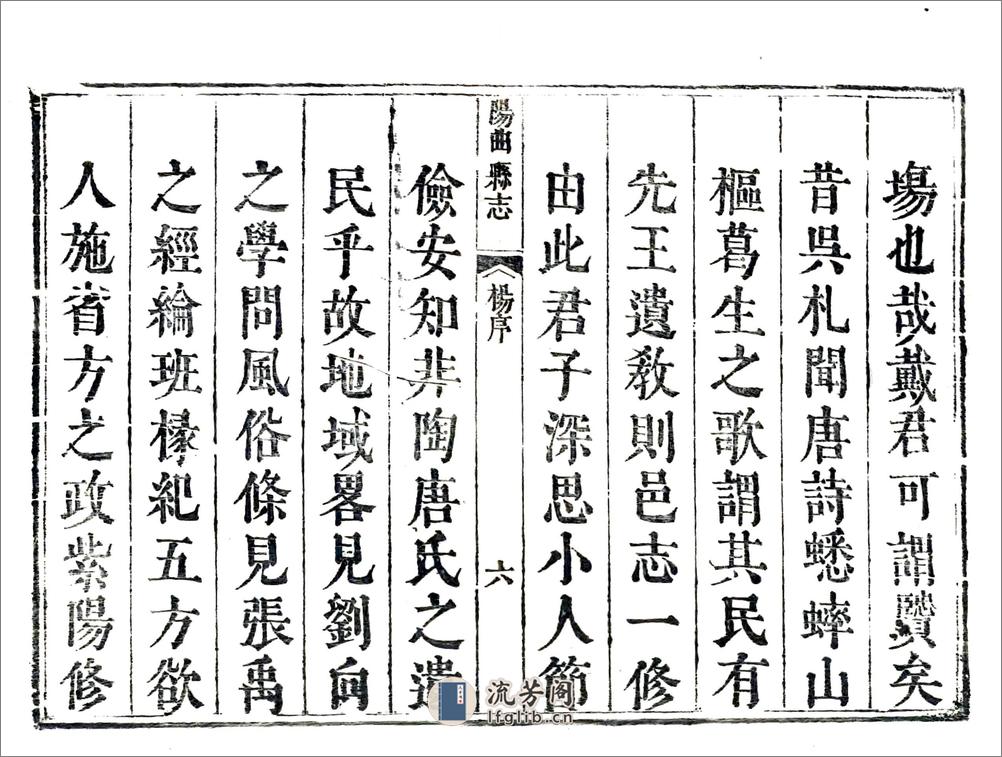 塲也哉戴君可謂贒矣
昔吳札聞唐詩蟋蟀山
樞葛生之歌謂其民有
先王遺敎則邑志一修
由此君子深思小人節
陽曲縣志 楊序 六
儉安知非陶唐氏之遺
民乎故地域畧見劉向
之學問風俗條見張禹
之經綸班椽紀五方欲
人施省方之政紫陽修
流芳阁
lfglib.cn